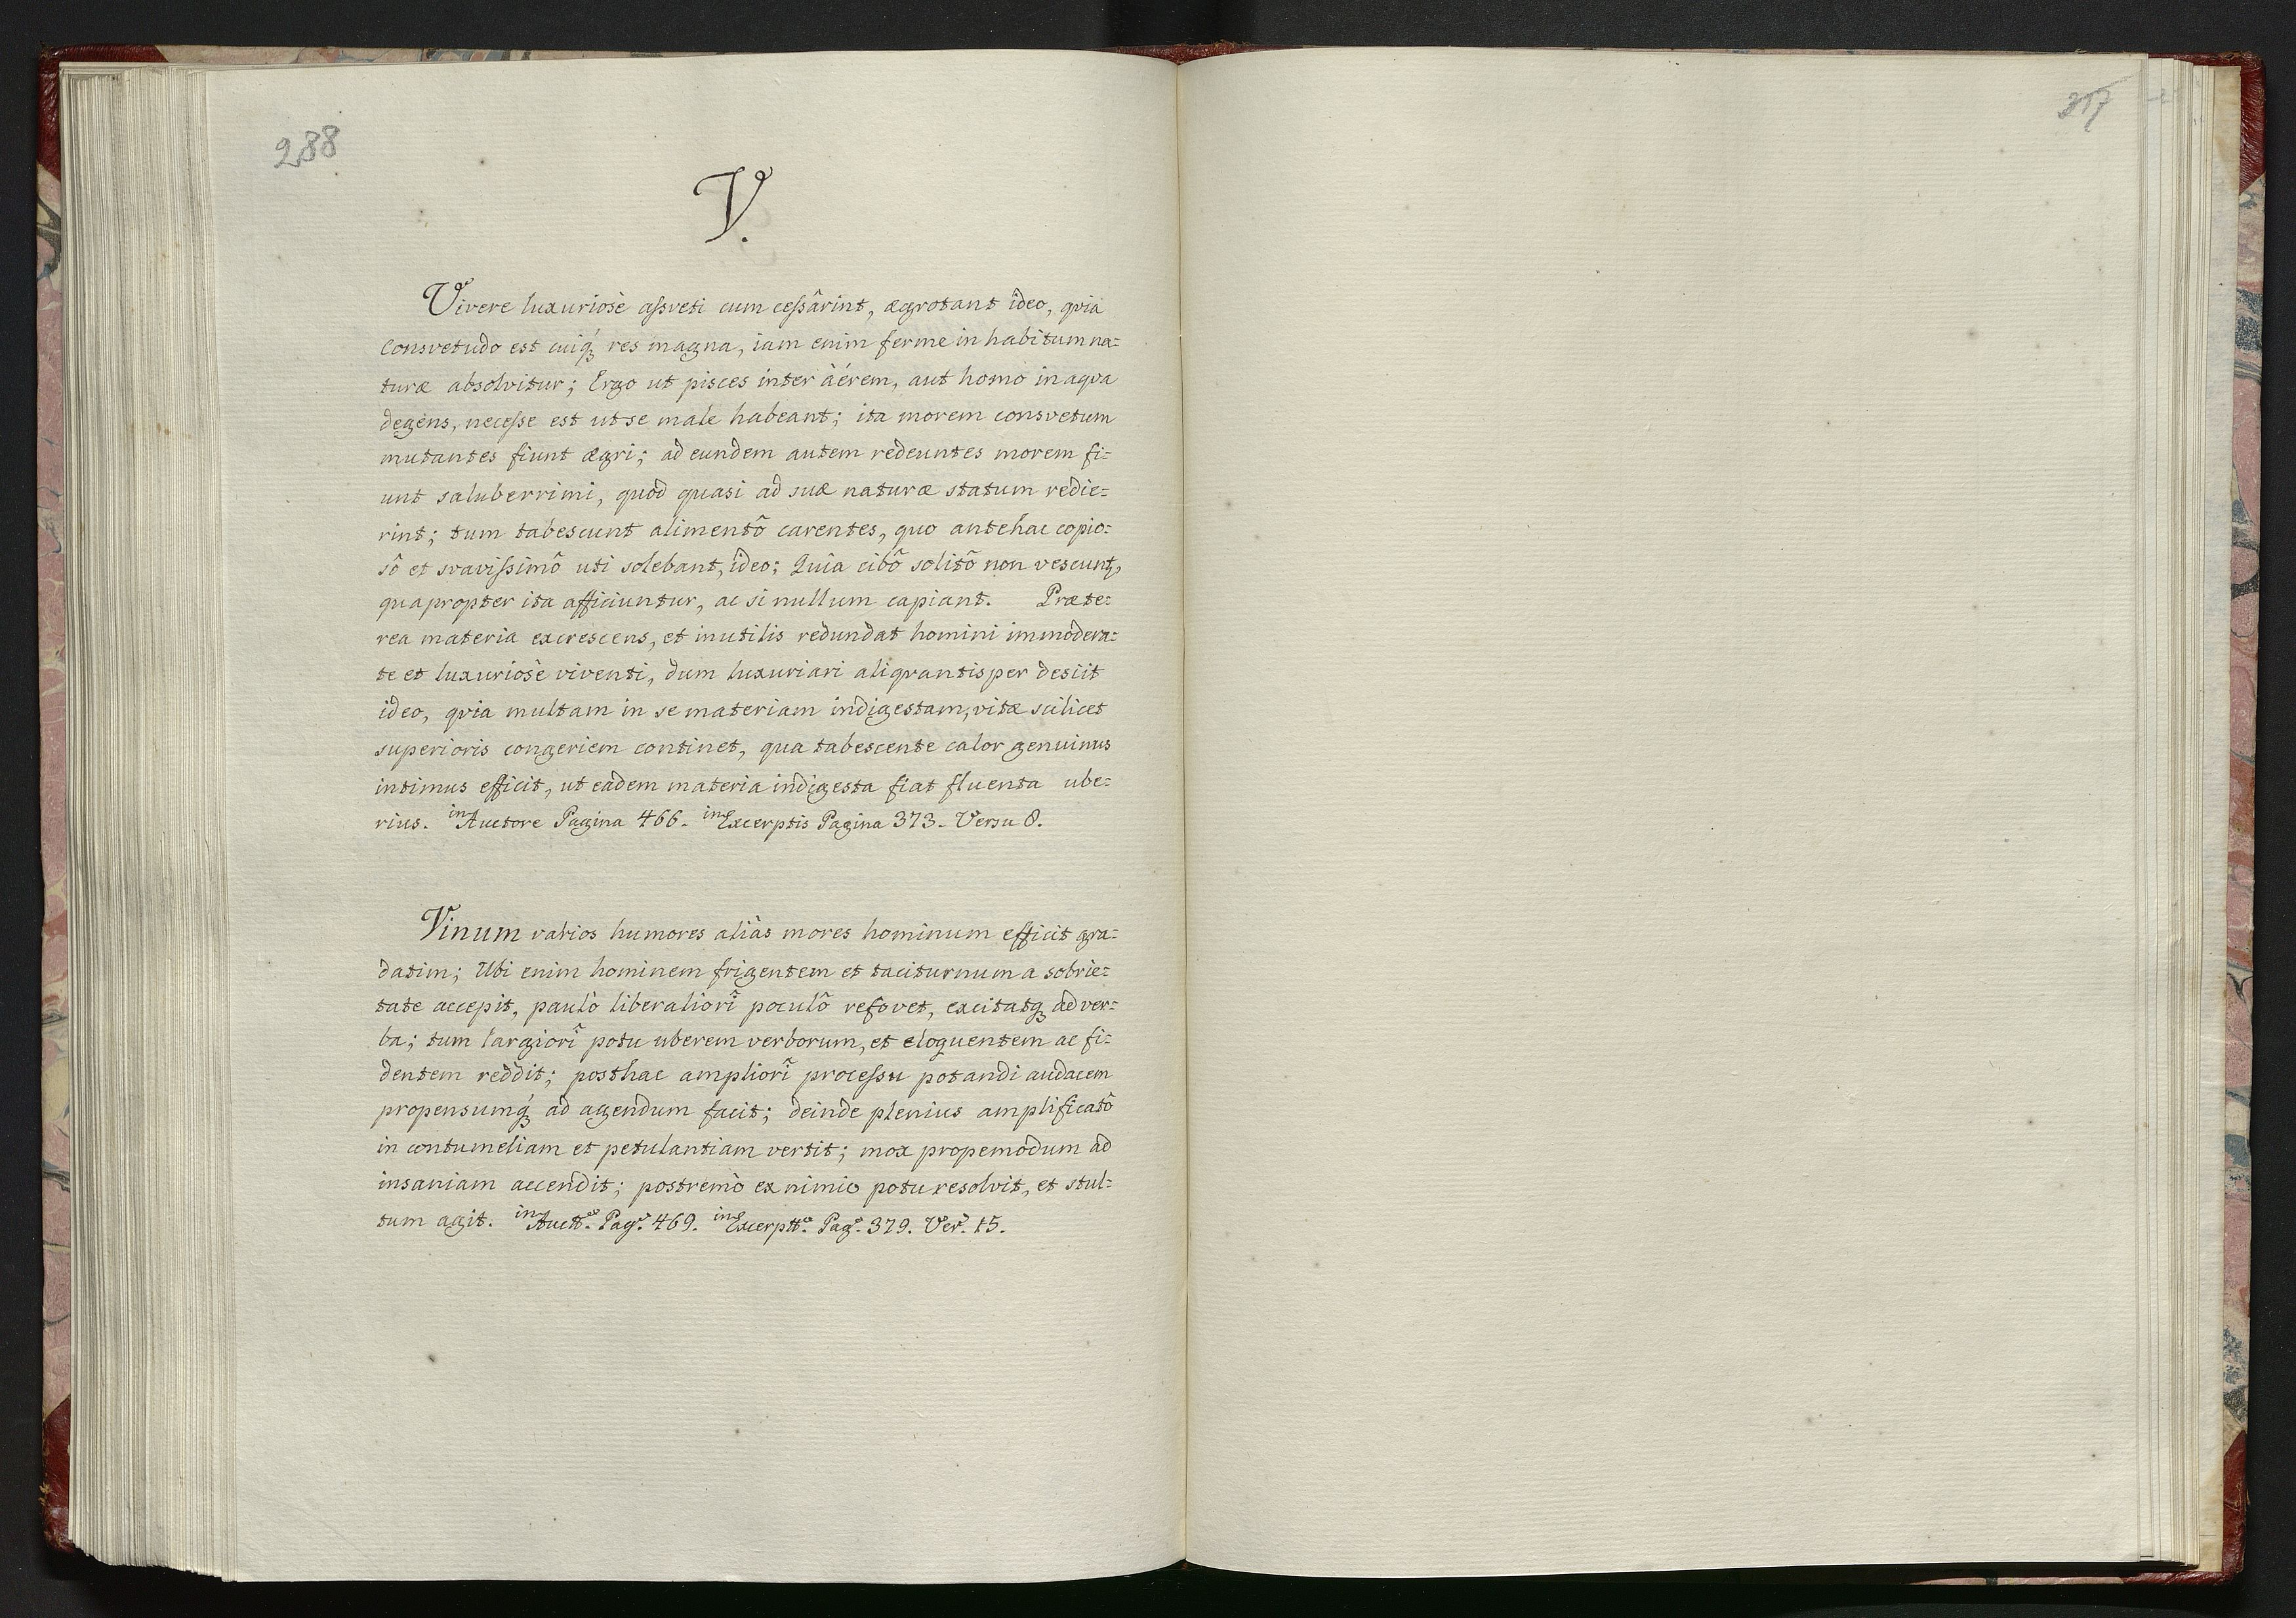 288
V.
Vivere luxuriosè aſsveti cum ceſsârint, ægrotant ideo, qvia
Consvetudo est cuiq́ꝫ res magna, iam enim ferme in habitum na=
turæ absolvitur; Ergo ut pisces inter àérem, aut homo in aqva
degens, neceſse est ut se male habeant; ita morem consvetum
mutantes fiunt ægri; ad eundem autem redeuntes morem fi=
unt saluberrimi, quod quasi ad suæ naturæ statum redie=
rint; tum tabescunt alimentô carentes, quo antehac copio=
sô et svaviſsimô uti solebant, ideo; Quia cibô solitô non vescuntꝫ,
quapropter ita afficiuntur, ac si nullum capiant. Præte=
rea materia excrescens, et inutilis redundat homini immodera=
te et luxuriosè viventi, dum luxuriari aliqvantisper desiit
ideo, qvia multam in se materiam indigestam, vitæ scilicet
superioris congeriem continet, qua tabescente calor genuinus
intimus efficit, ut eadem materia indigesta fiat fluenta ube=
rius. in Auctore Pagina 466. in Excerptis Pagina 373. Versu 8.
Vinum varios humores aliàs mores hominum efficit gra=
datim; Ubi enim hominem frigentem et taciturnum a sobrie=
tate accepit, paulò liberaliorî poculô refovet, excitatqꝫ ad ver=
ba; tum largiorî potu uberem verborum, et eloquentem ac fi=
dentem reddit; posthac ampliorî proceſsu potandi audacem
propensumq́ꝫ ad agendum facit; deinde plenius amplificatô
in contumeliam et petulantiam vertit; mox propemodum ad
insaniam accendit; postremò ex nimio potu resolvit, et stul=
tum agit. in Auctt.e Pag. 469. in Excerptt. Pag. 379. Ver. 15.
317